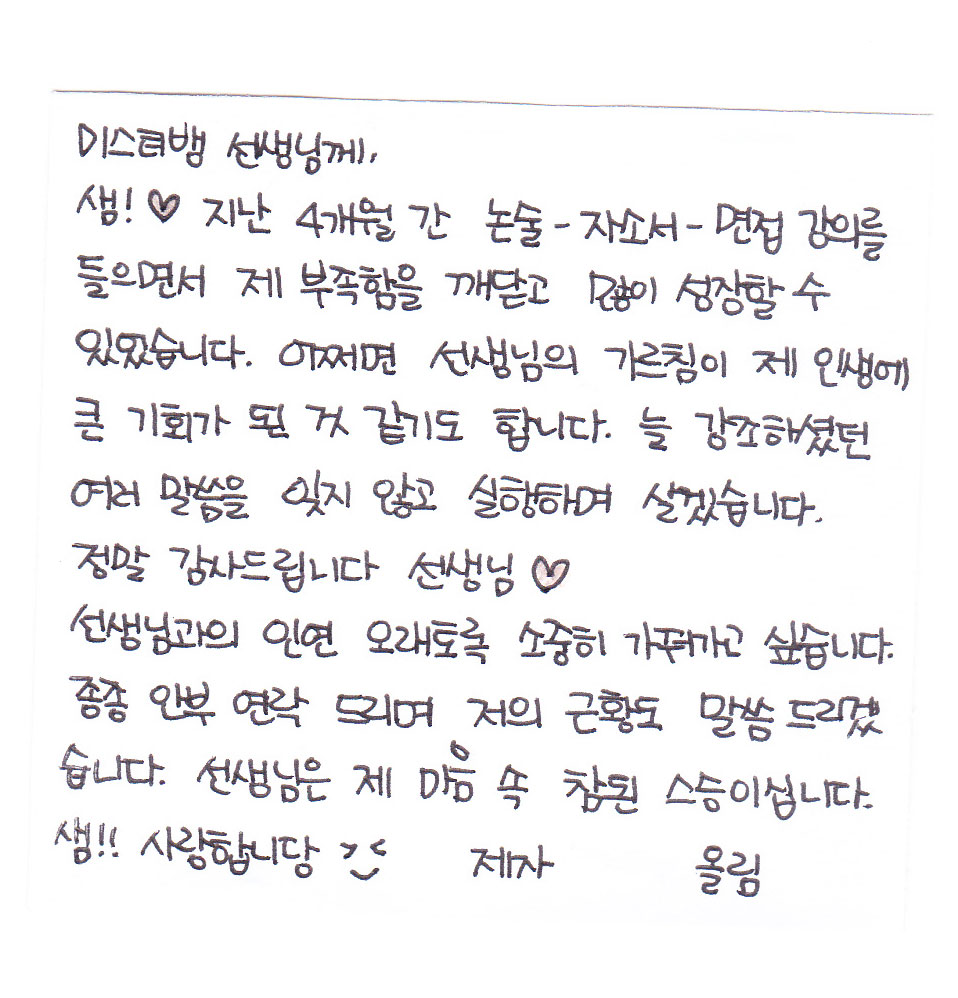 미스터뱀 선생님께,
샘! ♡ 지난 4개월 간 논술-자소서-면접 강의를
들으면서 제 부족함을 깨닫고 많이 성장할 수
있었습니다. 어쩌면 선생님의 가르침이 제 인생에
큰 기회가 된 것 같기도 합니다. 늘 강조하셨던
여러 말씀을 잊지 않고 실행하며 살겠습니다.
정말 감사드립니다 선생님 ♡
선생님과의 인연 오래토록 소중히 가꿔가고 싶습니다.
종종 안부 연락 드리며 저의 근황도 말씀 드리겠
습니다. 선생님은 제 마음 속 참된 스승이십니다.
샘!! 사랑합니당 >< 제자 올림